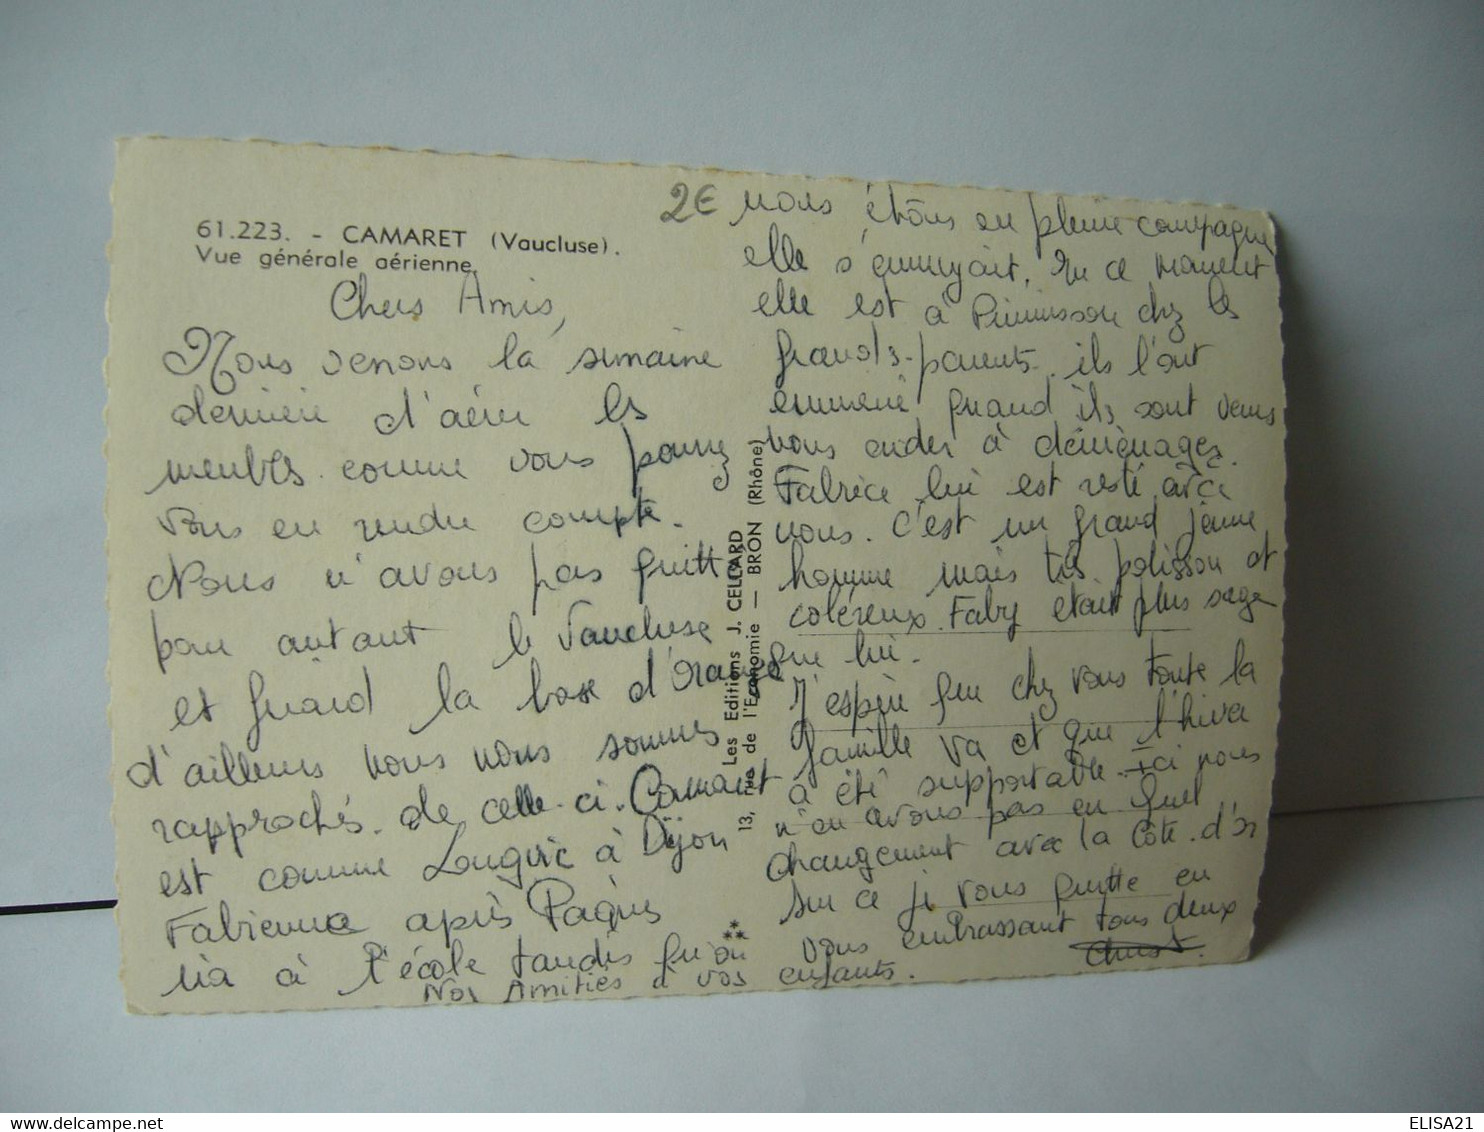 61.223. - CAMARET (Vaucluse).
Vue générale aérienne.
Chers Amis,
Nous venons la semaine
dernière d'aérer les
meubles comme vous pouvez
vous en rendre compte.
Nous n'avons pas quitté
pour autant le Vaucluse
et quand la base d'Orange
d'ailleurs nous nous sommes
rapprochés de celle-ci. Camaret
est comme Longvic à Dijon
Fabienne après Pâques
ira à l'école tandis qu'où
2€
nous étions en pleine campagne
elle s'ennuyait. En ce moment
elle est à chez les
grands-parents. ils l'ont
emmené quand ils sont venus
nous aider à déménager.
Fabrice lui est resté avec
nous. C'est un grand jeune
homme mais très polisson et
coléreux. Faby était plus sage
que lui.
J'espère que chez vous toute la
famille va et que l'hiver
a été supportable. Ici nous
n'en avons pas eu quel
changement avec la Côte-d'Or
Sur ce je vous quitte en
vous embrassant tous deux
Nos Amitiés à vos enfants.
Les Editions J. CELLARD
13, rue de l'Economie — BRON (Rhône)
ELISA21
delcampe.net